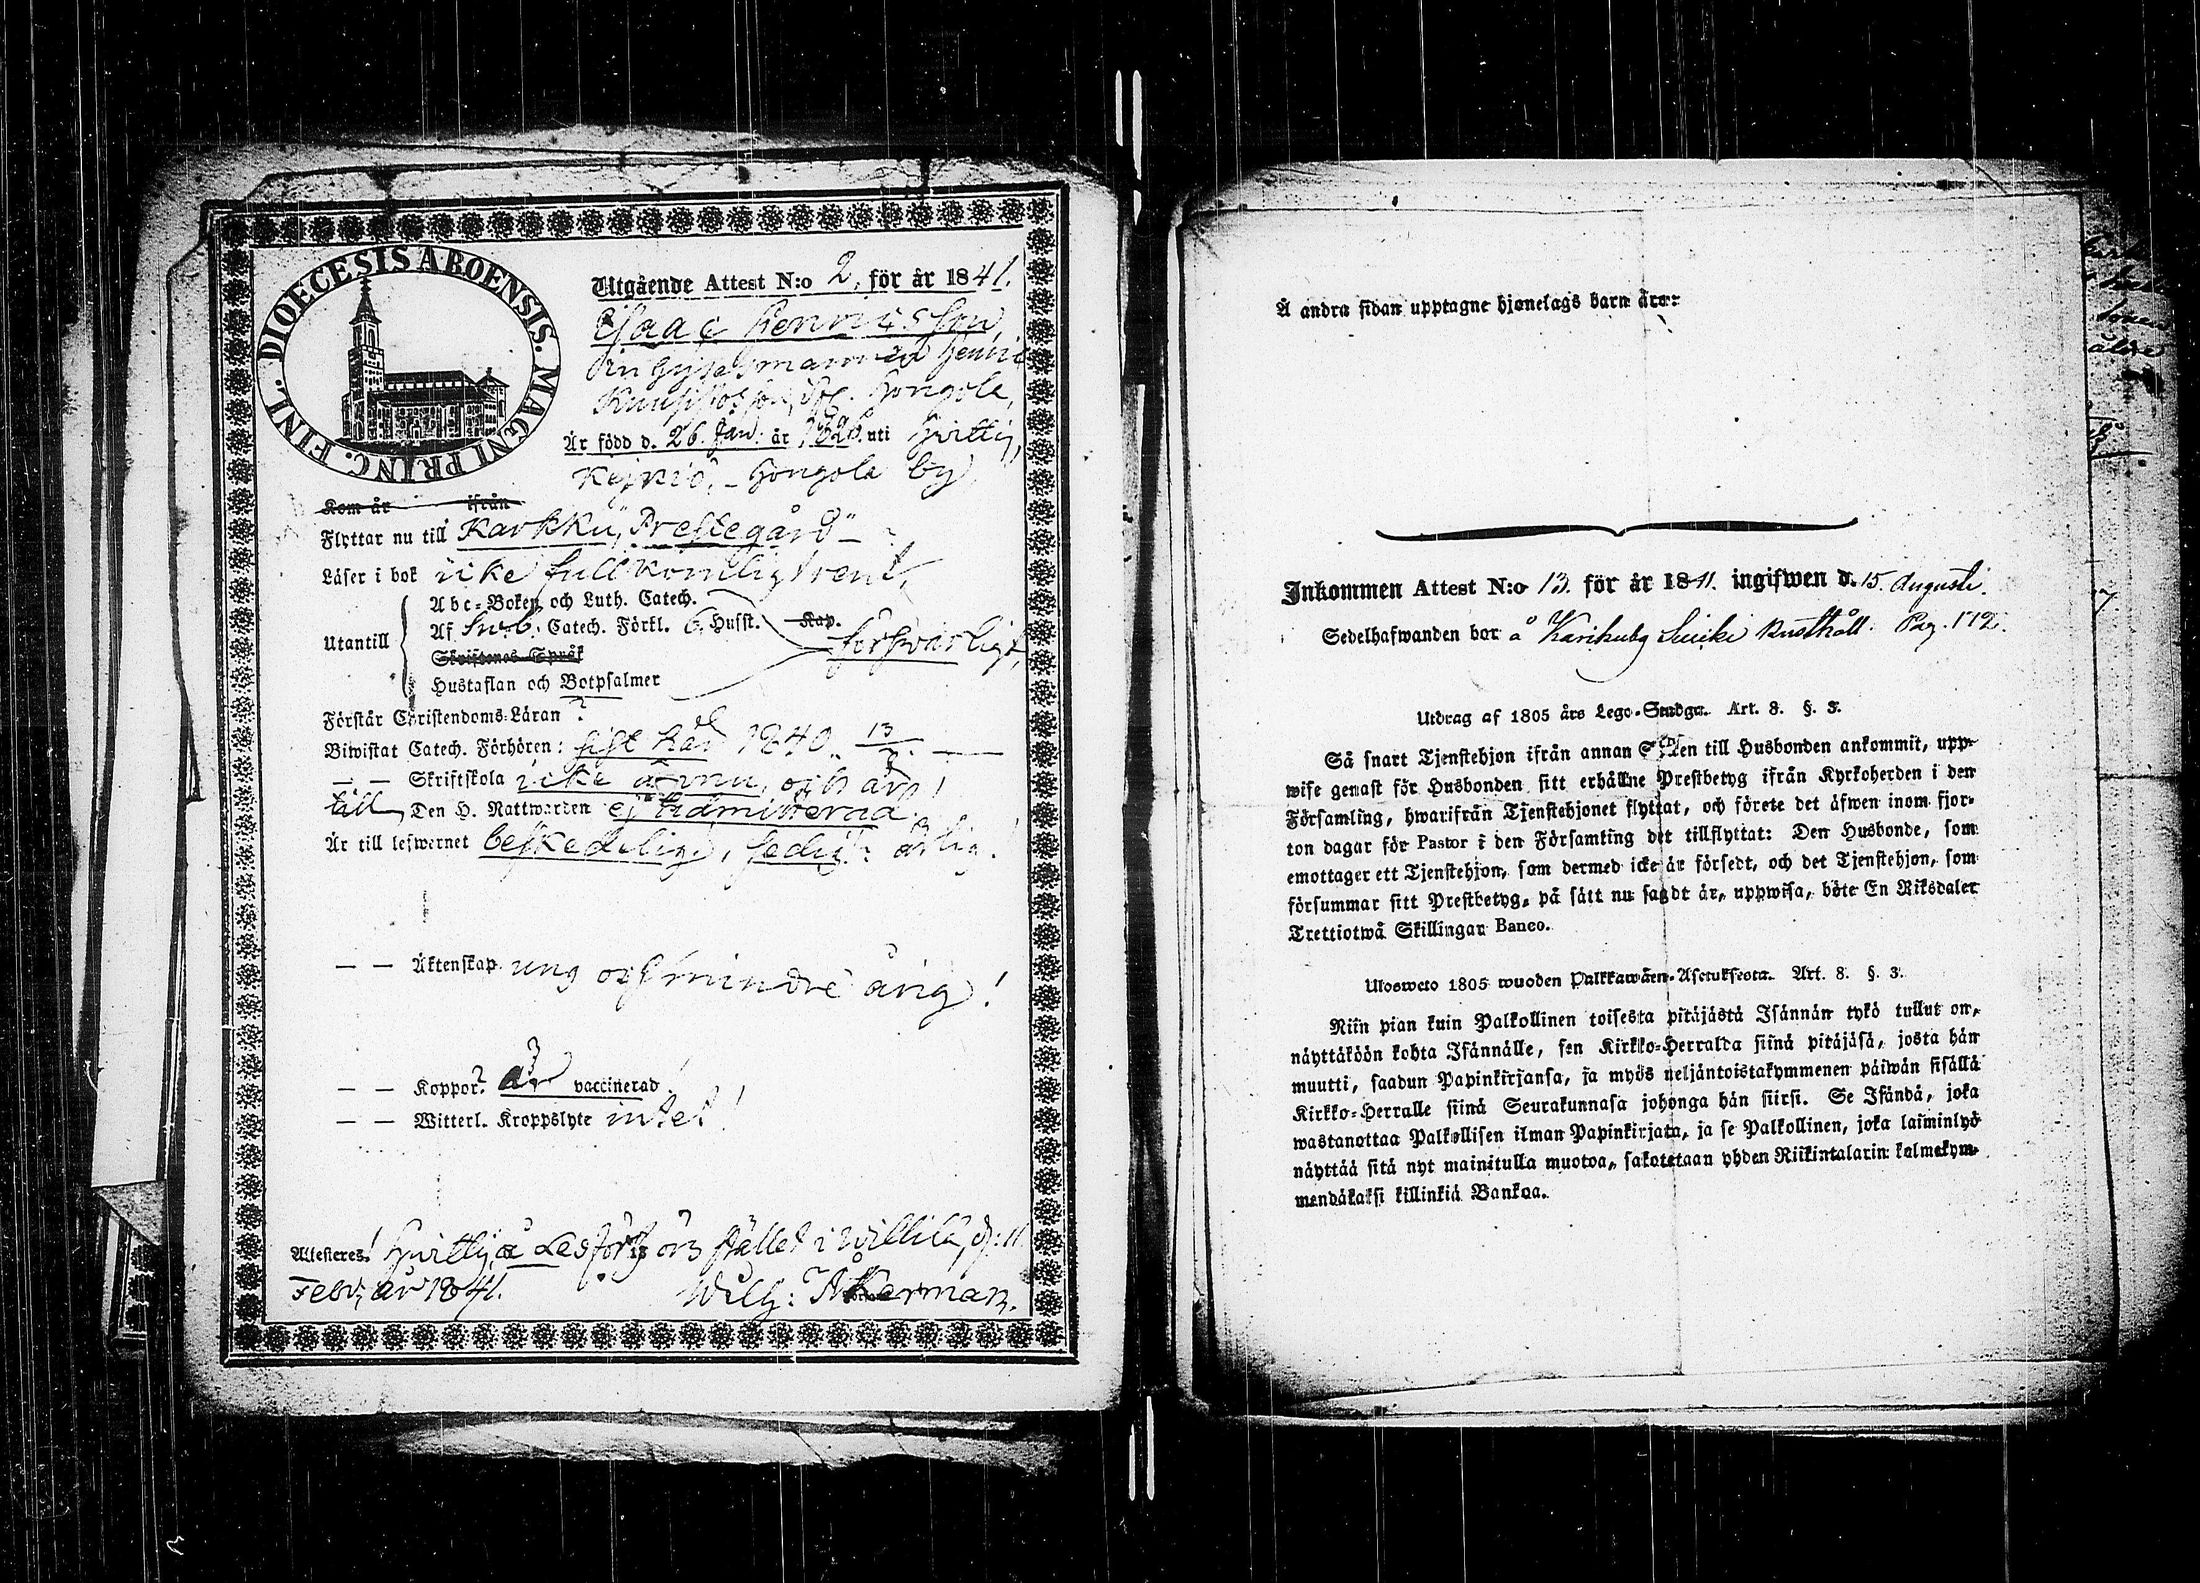 DIOECESIS ABOENSIS. MAGNI PRINC. FINL.
Utgående Attest N:o 2, för år 1841.
Isaac Henricsson,
Kejkiö, Hongola by
Är född d. 26. Jan: år uti Hvittis,
Kom år ifrån
Flyttar nu till Karkku, "Prestegård"
Läser i bok icke fullkomligt rent,
Utantill
Abc-Boken och Luth. Catech.
Af Sveb. Catech. Förkl. 6, Husst. Kap.
försvarligt,
Skriftenes Språk
Hustaflan och Botpsalmer
Förstår Christendoms-Läran?
Biwistat Catech. Förhören: sist här d 1840
— — Skriftskola icke ännu, och är!
till Den H. Nattwarden ej admitterad
Är till lefwernet beskedelig, sedig: ärlig!
— — Äktenskap ung och minderårig!
— — Koppor? är vaccinerad!
— — Witterl. Kroppslyte intet!
Attesteres! Hvittis, å Läsförhörs stället i Willilä, d: 11
Febr, år 1841. Wilh: Åkerman.
Å andra sidan upptagne hjonelags barn äro:
Inkommen Attest N:o 13. för år 1841. ingifwen d. 15. Augusti.
Sedelhafwanden bor å Karikuby Rusthåll. Pag. 172.
Utdrag af 1805 års Lego-Stadga. Art. 8. §. 3.
Så snart Tjenstehjon ifrån annan Socken till Husbonden ankommit, upp-
wise genast för Husbonden sitt erhållne Prestbetyg ifrån Kyrkoherden i den
Församling, hwarifrån Tjenstehjonet flyttat, och förete det äfwen inom fjor-
ton dagar för Pastor i den Församling det tillflyttat: Den Husbonde, som
emottager ett Tjenstehjon, som dermed icke är försedt, och det Tjenstehjon, som
försummar sitt Prestbetyg, på sätt nu sagdt är, uppwisa, böte En Riksdaler
Trettiotwå Skillingar Banco.
Ulosweto 1805 wuoden Palkkawäen-Asetuksesta. Art. 8. §. 3.
Niin pian kuin Palkollinen toisesta pitäjästä Isännän tykö tullut on,
näyttäköön kohta Isännälle, sen Kirkko-Herralda siinä pitäjäsä, josta hän
muutti, saadun Papinkirjansa, ja myös neljäntoistakymmenen päiwän sisällä
Kirkko-Herralle siinä Seurakunnasa johonga hän siirsi. Se Isändä, joka
wastanottaa Palkollisen ilman Papinkirjata, ja se Palkollinen, joka laiminlyö
näyttää sitä nyt mainitulla muotoa, sakotetaan yhden Riikintalarin kolmekym-
mendäkaksi killinkiä Bankoa.